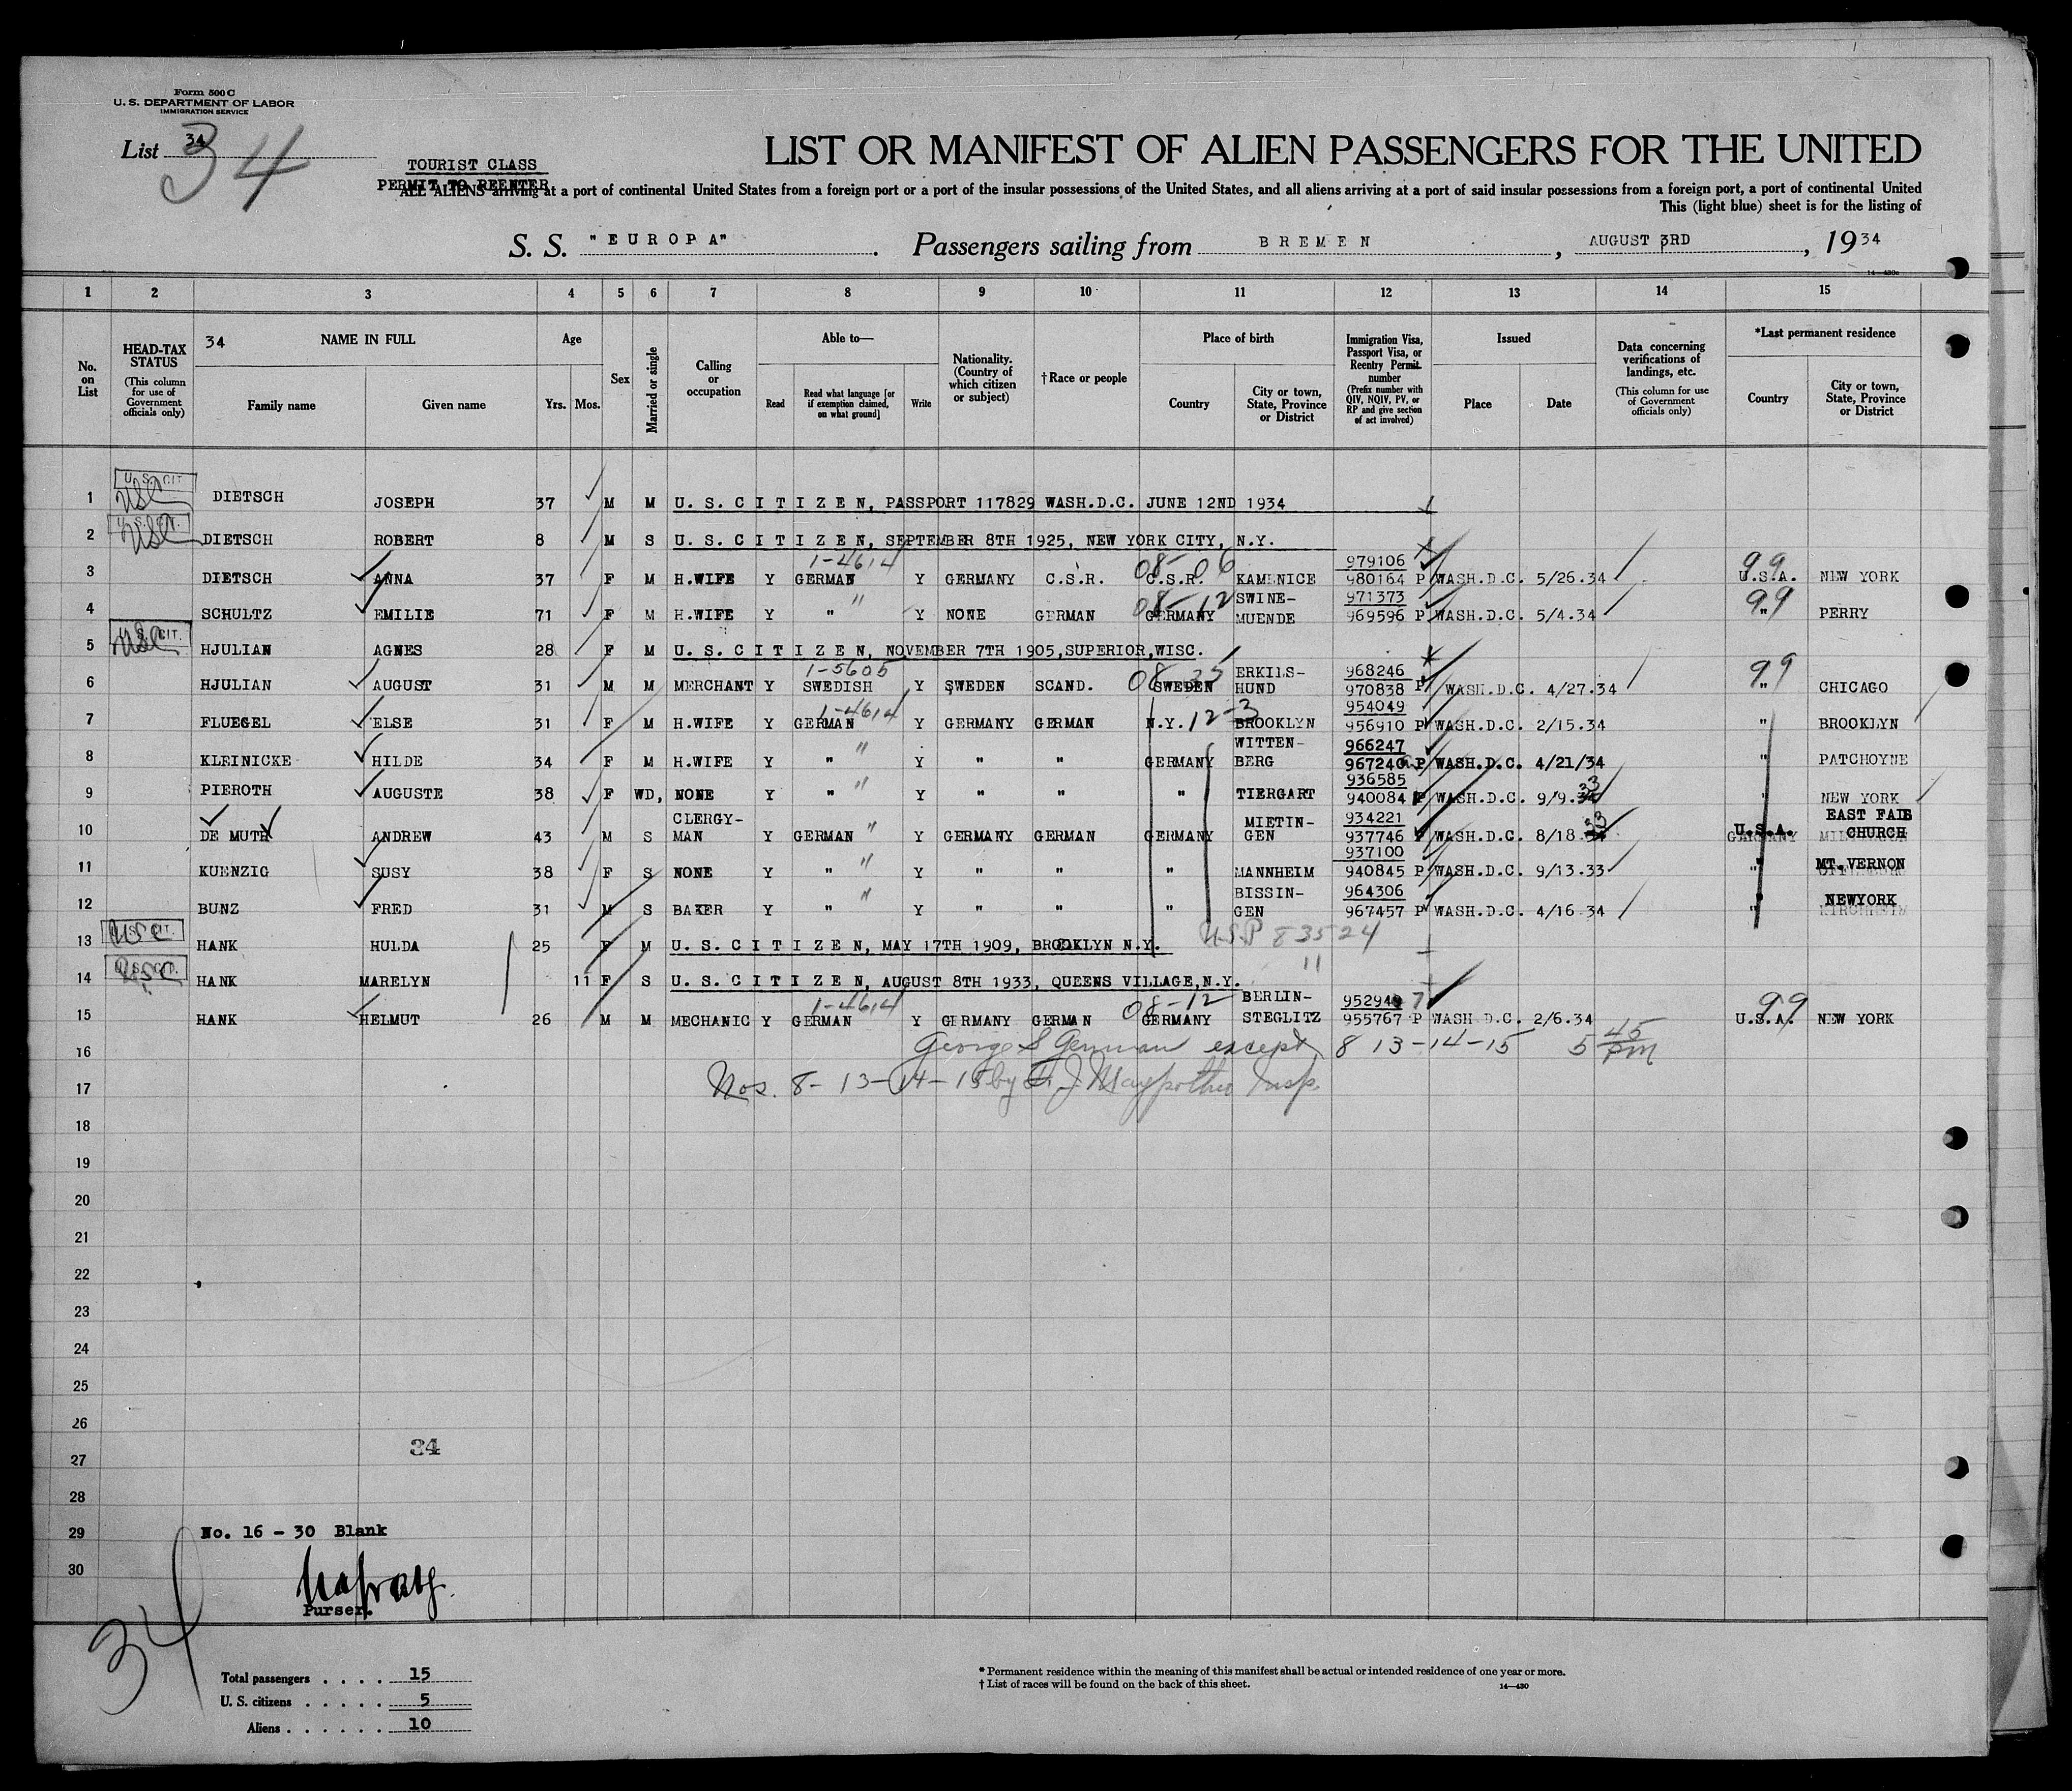 Form 500 C
U. S. DEPARTMENT OF LABOR
IMMIGRATION SERVICE
List 34
34
TOURIST CLASS
PERMIT TO REENTER
LIST OR MANIFEST OF ALIEN PASSENGERS FOR THE UNITED
ALL ALIENS arriving at a port of continental United States from a foreign port or a port of the insular possessions of the United States, and all aliens arriving at a port of said insular possessions from a foreign port, a port of continental United
This (light blue) sheet is for the listing of
S. S. "EUROPA". Passengers sailing from BREMEN, AUGUST 3RD, 1934
14—430c
1 2 3 4 5 6 7 8 9 10 11 12 13 14 15
No. on List
HEAD-TAX STATUS (This column for use of Government officials only)
34 NAME IN FULL
Family name Given name
Age Yrs. Mos.
Sex
Married or single
Calling or occupation
Able to— Read Read what language [or if exemption claimed, on what ground] Write
Nationality. (Country of which citizen or subject)
†Race or people
Place of birth Country City or town, State, Province or District
Immigration Visa, Passport Visa, or Reentry Permit number (Prefix number with QIV, NQIV, PV, or RP and give section of act involved)
Issued Place Date
Data concerning verifications of landings, etc. (This column for use of Government officials only)
*Last permanent residence Country City or town, State, Province or District
1 U. S. CIT. USC DIETSCH JOSEPH 37 M M U. S. CITIZEN, PASSPORT 117829 WASH.D.C. JUNE 12ND 1934
2 U. S. CIT. USC DIETSCH ROBERT 8 M S U. S. CITIZEN, SEPTEMBER 8TH 1925, NEW YORK CITY, N.Y.
1-4614 08-06 979106 99
3 DIETSCH ANNA 37 F M H.WIFE Y GERMAN Y GERMANY C.S.R. C.S.R. KAMENICE 980164 P WASH.D.C. 5/26.34 U.S.A. NEW YORK
08-12 SWINE- 971373 99
4 SCHULTZ EMILIE 71 F M H.WIFE Y " Y NONE GERMAN GERMANY MUENDE 969596 P WASH.D.C. 5/4.34 " PERRY
5 U. S. CIT. USC HJULIAN AGNES 28 F M U. S. CITIZEN, NOVEMBER 7TH 1905,SUPERIOR,WISC.
1-5605 08-35 ERKILS- 968246 99
6 HJULIAN AUGUST 31 M M MERCHANT Y SWEDISH Y SWEDEN SCAND. SWEDEN HUND 970838 P WASH.D.C. 4/27.34 " CHICAGO
1-4614 12-3 954049
7 FLUEGEL ELSE 31 F M H.WIFE Y GERMAN Y GERMANY GERMAN N.Y. BROOKLYN 956910 P WASH.D.C. 2/15.34 " BROOKLYN
WITTEN- 966247
8 KLEINICKE HILDE 34 F M H.WIFE Y " Y " " GERMANY BERG 967240 P WASH.D.C. 4/21/34 " PATCHOYNE
936585 33
9 PIEROTH AUGUSTE 38 F WD, NONE Y " Y " " " TIERGART 940084 P WASH.D.C. 9/9.34 " NEW YORK
CLERGY- MIETIN- 934221 33 EAST FAIB
10 DE MUTH ANDREW 43 M S MAN Y GERMAN Y GERMANY GERMAN GERMANY GEN 937746 P WASH.D.C. 8/18.34 U.S.A. CHURCH
937100
11 KUENZIG SUSY 38 F S NONE Y " Y " " " MANNHEIM 940845 P WASH.D.C. 9/13.33 " MT.VERNON
BISSIN- 964306
12 BUNZ FRED 31 M S BAKER Y " Y " " " GEN 967457 P WASH.D.C. 4/16.34 " NEWYORK
13 U. S. CIT. USC HANK HULDA 25 F M U. S. CITIZEN, MAY 17TH 1909, BROOKLYN N.Y. U.S.P 83524
14 U. S. CIT. USC HANK MARELYN 11 F S U. S. CITIZEN, AUGUST 8TH 1933, QUEENS VILLAGE,N.Y. "
1-4614 08-12 BERLIN- 952949 7 99
15 HANK HELMUT 26 M M MECHANIC Y GERMAN Y GERMANY GERMAN GERMANY STEGLITZ 955767 P WASH.D.C. 2/6.34 U.S.A. NEW YORK
16 George S German except 8 13-14-15 5 45 pm
17 Nos. 8-13-14-15 by Insp.
18
19
20
21
22
23
24
25
26
34
27
28
29 No. 16 - 30 Blank
30
Purser.
34
Total passengers . . . . 15
U. S. citizens . . . . . 5
Aliens . . . . . . 10
* Permanent residence within the meaning of this manifest shall be actual or intended residence of one year or more.
† List of races will be found on the back of this sheet.
14—430